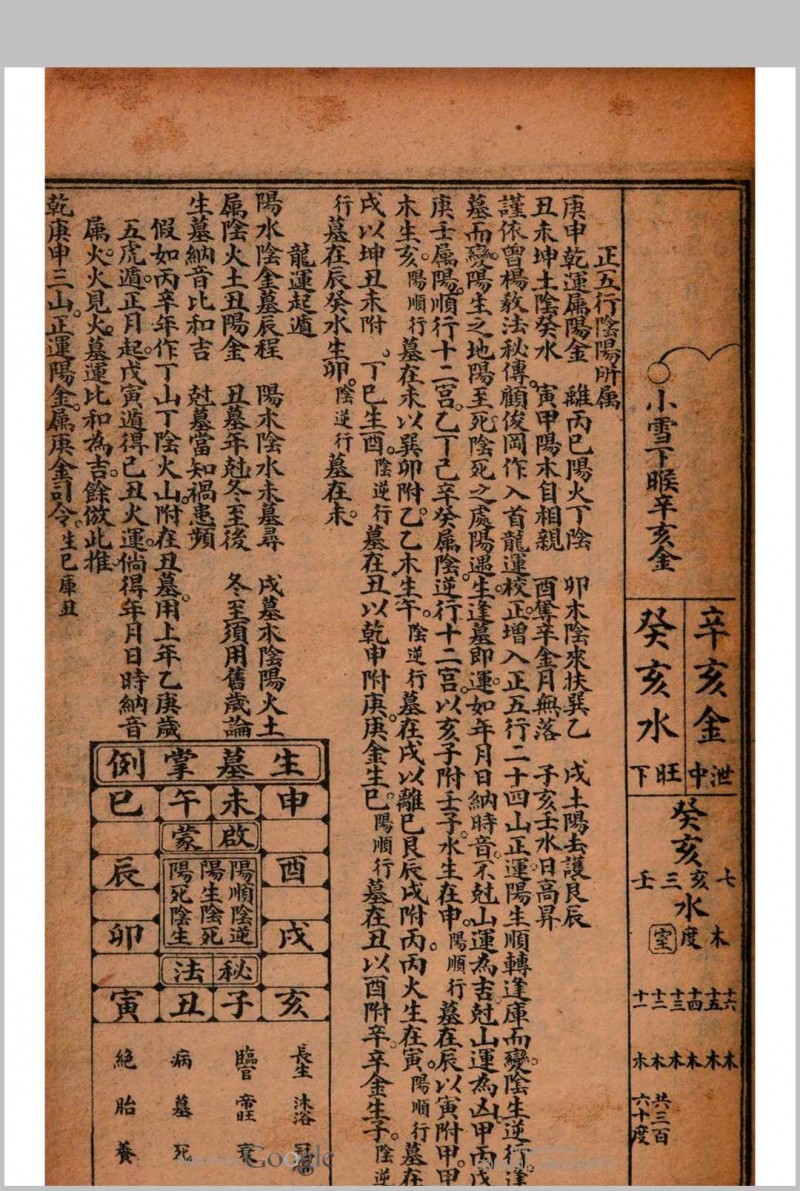 小雪下㬋辛亥金
辛亥金
泄中
癸亥水
旺下
癸亥
七亥三壬
水
木度室
十六
十五
十四
十三
十二
十一
木木木木木木
共三百
六十度
正五行陰陽所属
庚申乾運属陽金 離丙巳陽火丁陰 卯木陰來扶巽乙 戌土陽去護艮辰
丑未坤土陰癸水 寅甲陽木自相親 酉奪辛金月無落 子亥壬水日高昇
謹依曾楊敎法秘傳顧俊岡作入首龍運校正增入正五行二十四山正運陽生順轉逢庫而變陰生逆行逢
墓而變陽生之地陽至死陰死之處陽遇生逢墓即運如年月日納時音不尅山運為吉尅山運為凶甲丙戊
庚壬属陽順行十二宮乙丁己辛癸属陰逆行十二宮以亥子附壬子水生在申陽順行墓在辰以寅附甲甲
木生亥陽順行墓在未以巽卯附乙乙木生午陰逆行墓在戌以離巳艮辰戌附丙丙火生在寅陽順行墓在
戌以坤丑未附丁巳生酉陰逆行墓在丑以乾申附庚庚金生巳陽順行墓在丑以酉附辛辛金生子陰逆
行墓在辰癸水生卯陰逆行墓在未
龍運起遁
陽水陰金墓辰程 陽木陰水未墓尋 戌墓木陰陽火土
属陰火土丑陽金 丑墓年尅冬至後 冬至須用舊歲論
生墓納音比和吉 尅墓當知禍患頻
假如丙辛年作丁山丁陰火山附在丑墓用上年乙庚歲
五虎遁正月起戊寅遁得己丑火運倘得年月日時納音
属火火見火墓運比和為吉餘倣此推
乾庚申三山正運陽金属庚金司令生巳庫丑
生墓掌例
申未午巳
啟蒙
酉
辰
陽順陰逆
陽生陰死
陽死陰生
戌
卯
秘法
亥子丑寅
長生 沐浴 冠帶
臨官 帝旺 衰
病 墓 死
絶 胎 養
Google